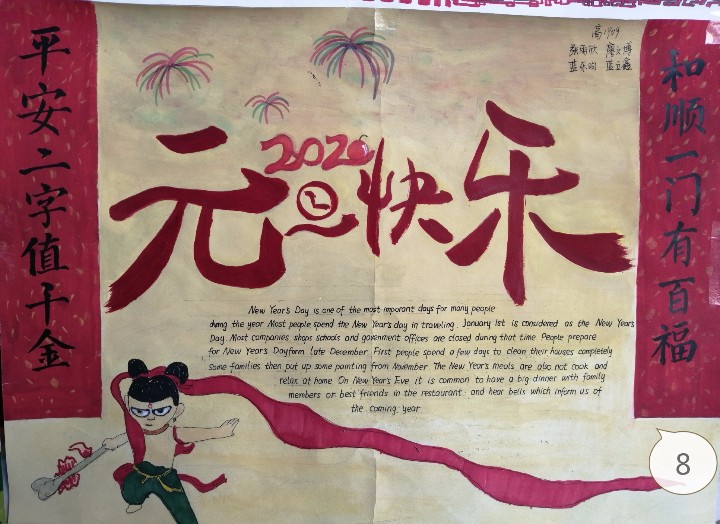 高1909
和顺一门有百福
平安二字值千金
2020
元旦快乐
New Year's Day is one of the most imporant days for many people
during the year Most people spend the New Year's day in traveling. January 1st is considered as the New Years
Day. Most companies shops schools and goverment offices are closed during that time People prepare
for New Year's Dayform late December. First people spend a few days to clean their houses completely
Some families then put up some painting from November The New Year's meals are also not cook and
relax at home On New Year's Eve it is common to have a big dinner with family
members or best friends in the restaurant. and hear bells which inform us of
the coming year
8